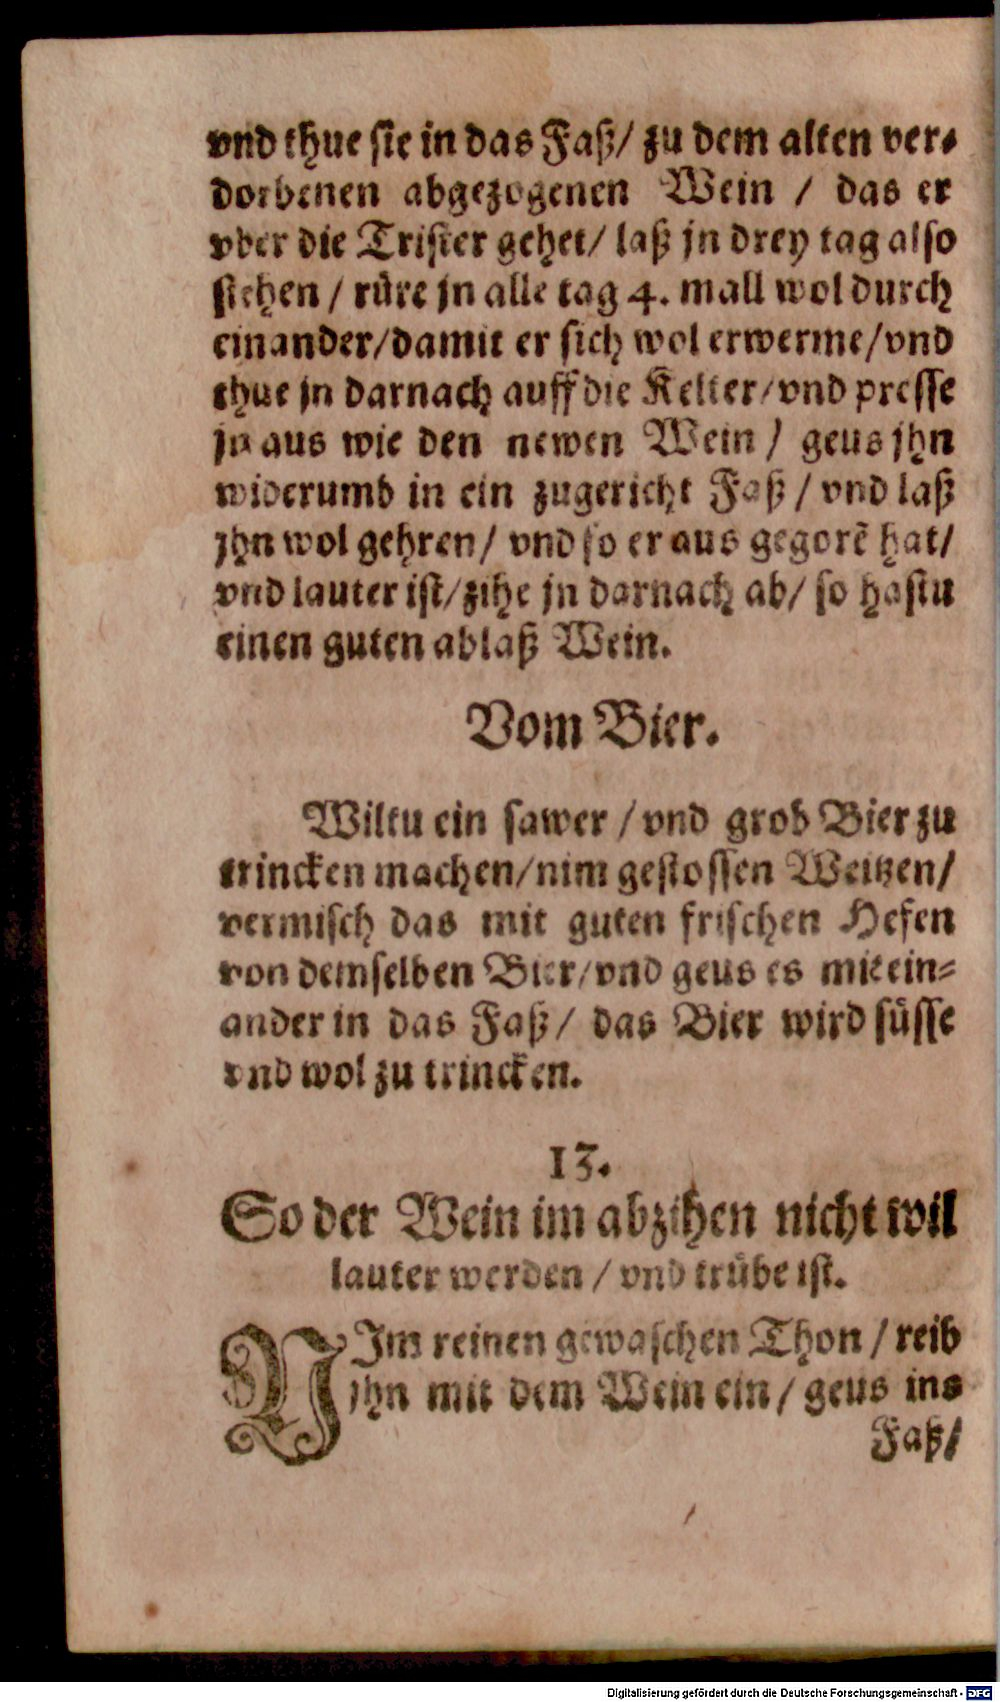 vnd thue sie in das Faß/ zu dem alten ver⸗
dorbenen abgezogenen Wein / das er
vber die Trister gehet/ laß jn drey tag also
stehen / rüre jn alle tag 4. mall wol durch
einander/damit er sich wol erwerme/vnd
thue jn darnach auff die Kelter/vnd presse
jn aus wie den newen Wein / geus jhn
widerumb in ein zugericht Faß / vnd laß
jhn wol gehren/ vnd so er aus gegorẽ hat/
vnd lauter ist/zihe jn darnach ab/ so hastu
einen guten ablaß Wein.
Vom Bier.
Wiltu ein sawer / vnd grob Bier zu
trincken machen/nim gestossen Weitzen/
vermisch das mit guten frischen Hefen
von demselben Bier/vnd geus es mit ein⸗
ander in das Faß/ das Bier wird süsse
vnd wol zu trincken.
13.
So der Wein im abzihen nicht wil
lauter werden / vnd trübe ist.
NIm reinen gewaschen Thon / reib
jhn mit dem Wein ein/ geus ins
Faß/
Digitalisierung gefördert durch die Deutsche Forschungsgemeinschaft - DFG